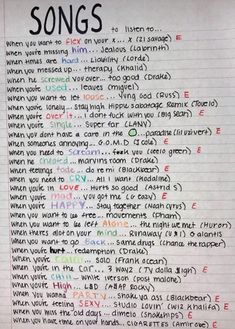 SONGS
to listen to...
When you want to flex on your x... X (21 savage) E
When you're missing him... Jealous (Labrinth)
When times are hard... Liability (Lorde)
When you messed up... therapy (Khalid)
When he screwed you over... too good (Drake)
When you're used... leaves (miguel)
When you want to let loose... Yung God (RUSS) E
When you're lonely... stay high Hippie sabotage Remix (Tovelo)
When you're over it... I don't fuck with you (big Sean) E
When your single... super far (LANY)
When you don't have a care in the ... paradise (lil uzi vert) E
When someones annoying... G.O.M.D (J Cole) E
When you need to scream... feels you (ceelo green) E
When he cheated... marvins room (Drake) E
When feelings fade... do re mi (Blackbear) E
When you need to CRY... all I want (Kodaline)
When you're in LOVE... Hurts so good (Astrid S)
When your mad... you got me (G eazy) E
When you're HAPPY... Stay together (Noah cyrus) E
When you want to be free... movements (Pham)
When you want to be left Alone... the night we met (Huron)
When theres alot on your mind... Runaway (U.S.) (0 alaotis)
When you want to go Back... same drugs (Chance the rapper)
When you're hurt... redemption (Drake)
When you're calm... solo (Frank ocean)
When you're in the car... 3 wayz (Ty dolla $igh) E
When you chill... white iverson (post malone) E
When you're High... LSD (A$AP Rocky)
When you wanna PARTY... shake yo ass (Blackbear) E
When your feeling SEXY... Studio Lovin' (wiz Khalifa) E
When you miss the old days... dimelo (Snakehips) E
When you have time on your hands... CIGARETTES (Jamiroar) E